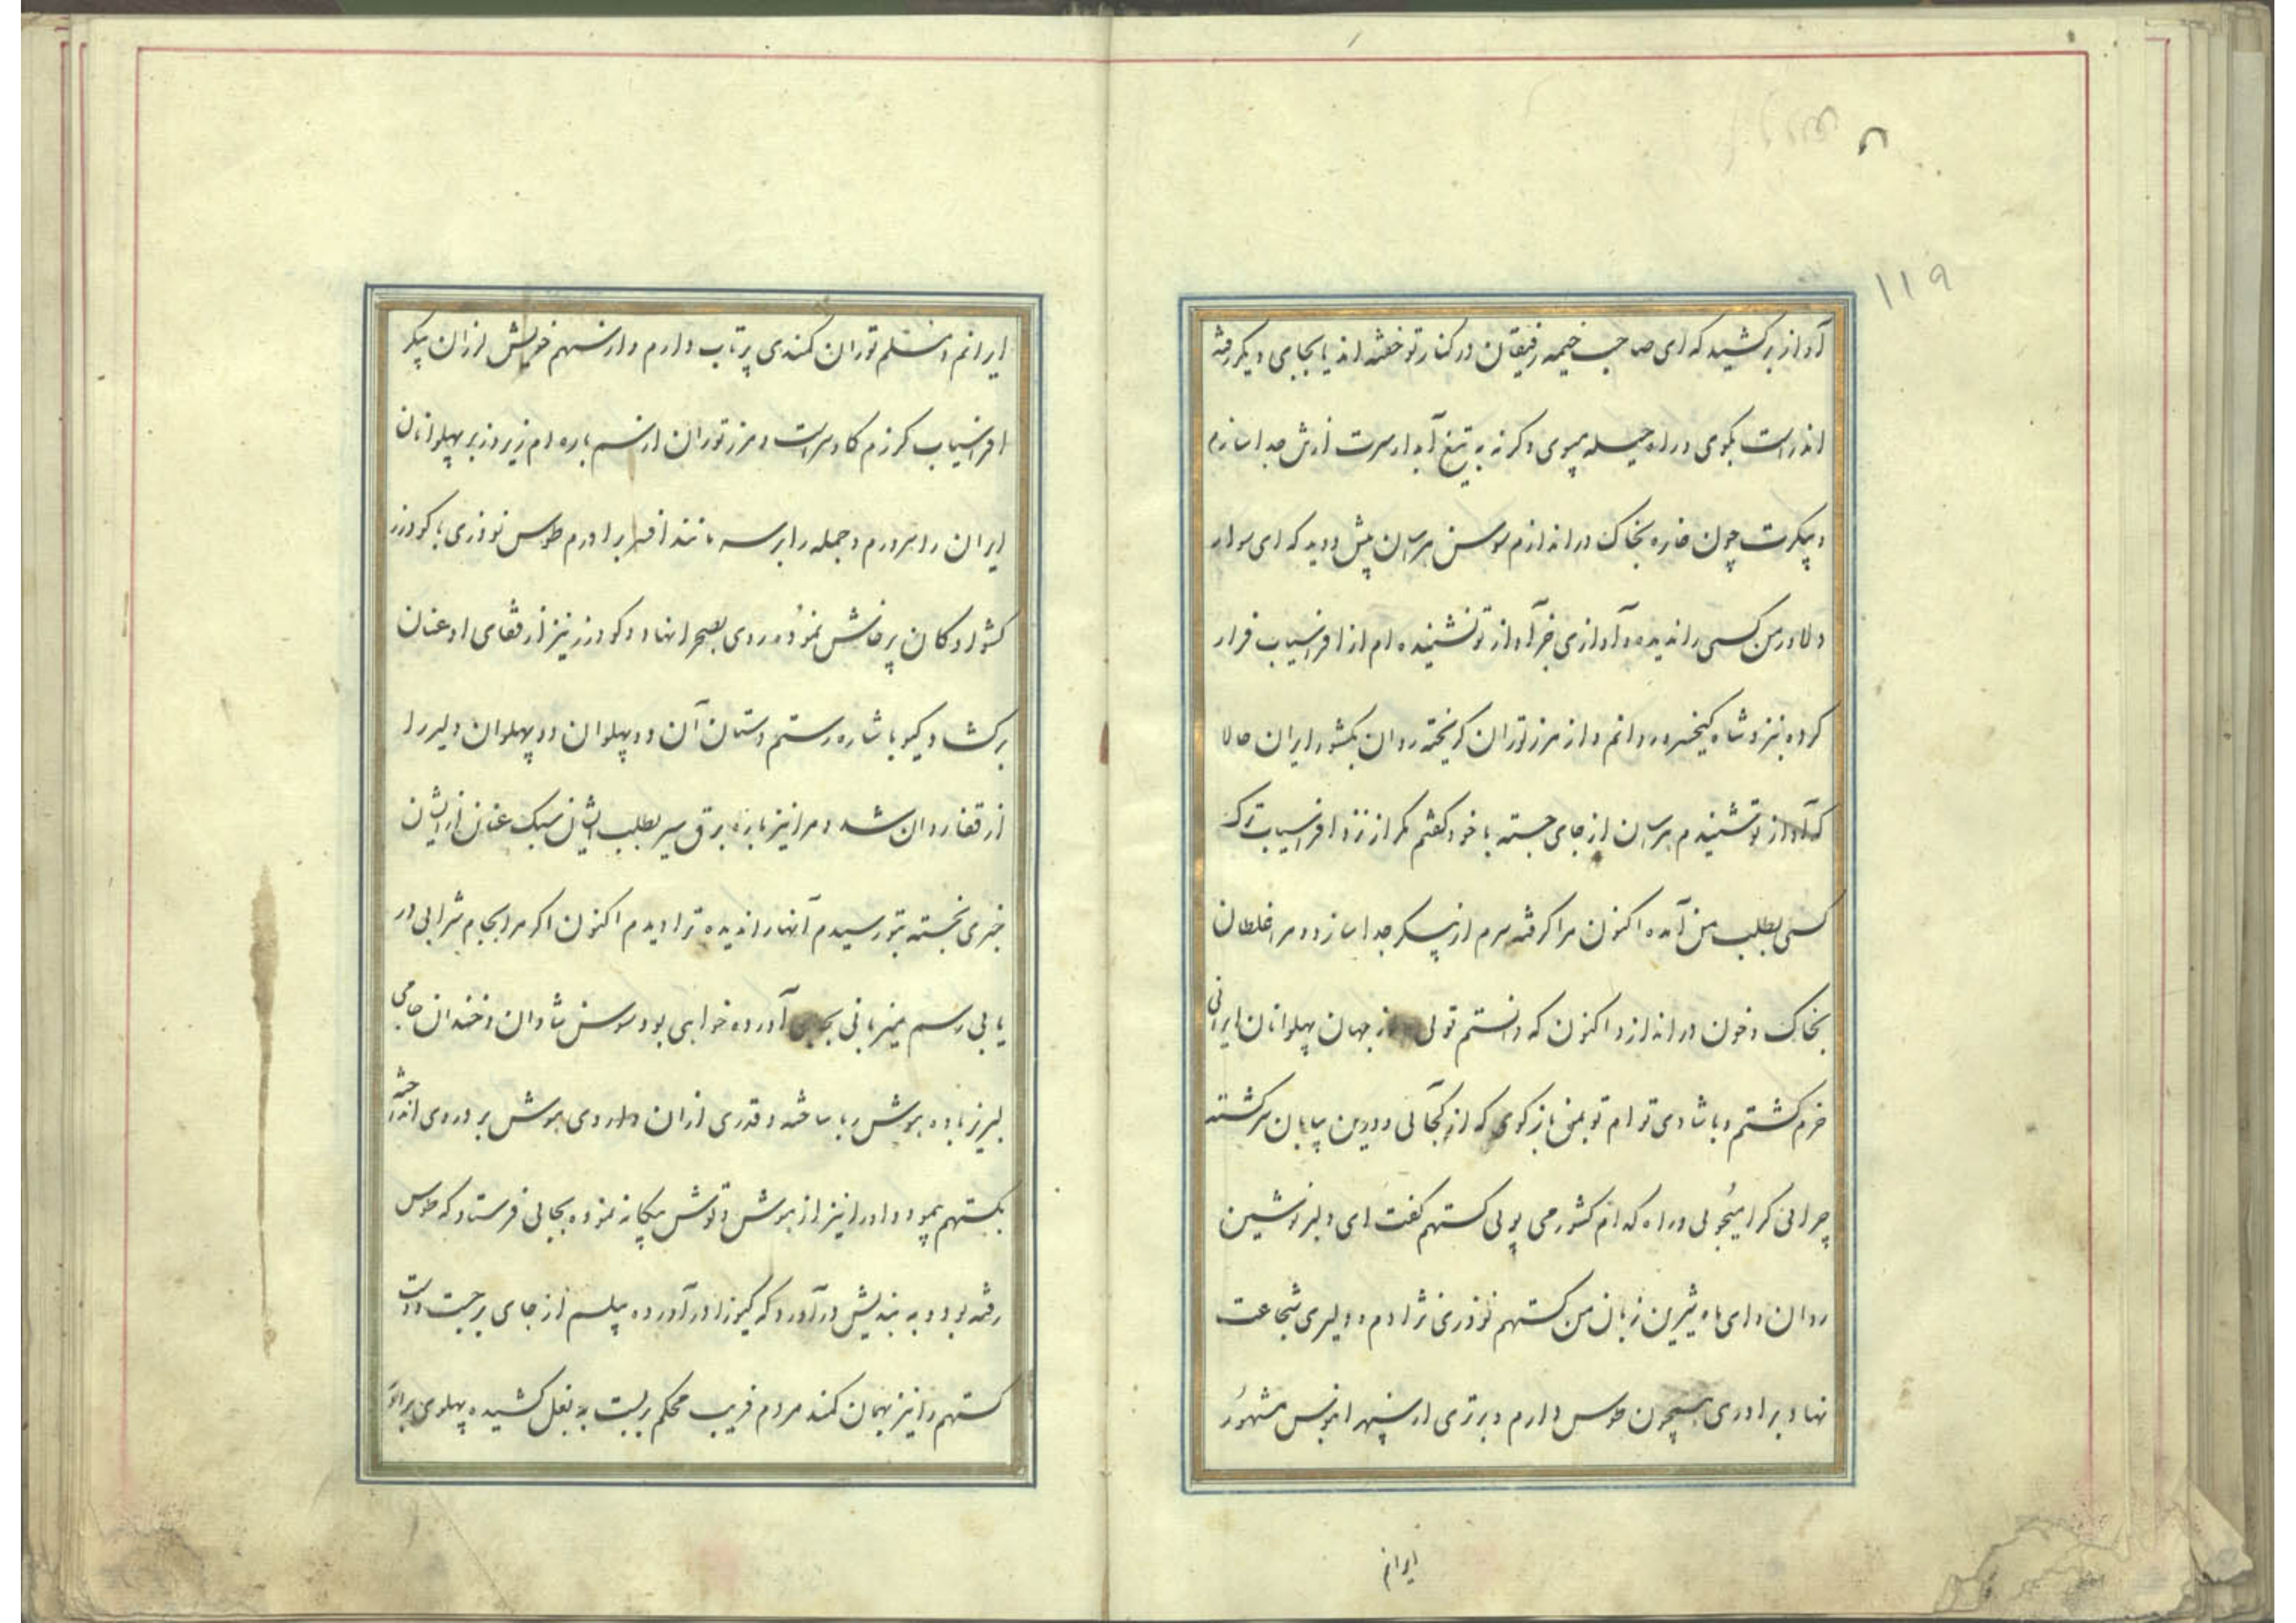 ۱۱۹
آواز برکشید که ای صاحب خیمه رفیقان در کنار تو خفته اند یا بجای دیگر رفته
اند راست بگوی و راه حیله مپوی وگرنه به تیغ آبدار سرت از تن جدا سازم
و پیکرت چون خاره بخاک در اندازم سوسن هراسان پیش دوید که ای سوار
دلاور من کسی را ندیده و آوازی جز آواز تو نشنیده ام از افراسیاب فرار
کرده بنزد شاه کیخسرو روانم و از مرز توران گریخته روان بکشور ایران حالا
که آواز تو شنیدم هراسان از جای جسته با خود گفتم مگر از نزد افراسیاب ترک
کسی بطلب من آمده اکنون مرا گرفته سرم از پیکر جدا سازد و مرا غلطان
بخاک و خون در اندازد اکنون که دانستم توئی از جهان پهلوانان ایرانی
خرم گشتم و با شادی توام تو بمن بازگوی که از کجائی و درین بیابان سرگشته
چرائی کرا میجوئی و راه کدام کشور می پوئی گستهم گفت ای دلبر نوشین
روان و ای ماه شیرین زبان من گستهم نوذری نژادم و دلیری شجاعت
نهاد برادری همچون طوس دارم و برتری از سپهر آبنوس مشهور
ایرانم
ایرانم و مسلم توران کمندی پرتاب دارم و از سهم خویش لرزان پیکر
افراسیاب گرزم گاوسراست و مرز توران از سم باره ام زیر و زبر پهلوانان
ایران را سرورم و جمله را بر سر مانند افسر برادرم طوس نوذری با گودرز
کشوادگان پرخاش نموده روی بصحرا نهاد و گودرز نیز از قفای او عنان
برگشاد و گیو باشاره رستم دستان آن دو پهلوان دو پهلوان دلیر را
از قفا روان شد و مرا نیز باره برق سیر بطلب ایشان سبک عنان از ایشان
خبری نجسته بتو رسیدم آنها را ندیده ترا دیدم اکنون اگر مرا بجام شرابی در
یابی رسم میزبانی بجای آورده خواهی بود سوسن شادان و خندان جامی
لبریز باده بیهوش ربا ساخته و قدری از آن داروی بیهوش بر در وی انداخته
بگستهم پیمود و او را نیز از هوش و توش بیگانه نموده بجائی فرستاد که طوس
رفته بود و به بندیش درآورد که گیو را درآورده پیلسم از جای برجست و دست
گستهم را نیز بهمان کمند مردم فریب محکم بربست به بغل کشیده پهلوی برادر